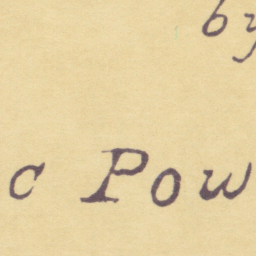 by
c Pow